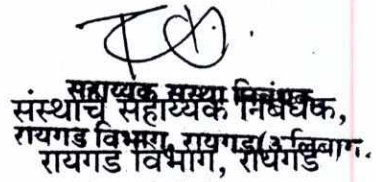 सहाय्यक संस्था निबंधक
संस्थांचे सहाय्यक निबंधक,
रायगड विभाग, रायगड(अलिबाग.
रायगड विभाग, रायगड